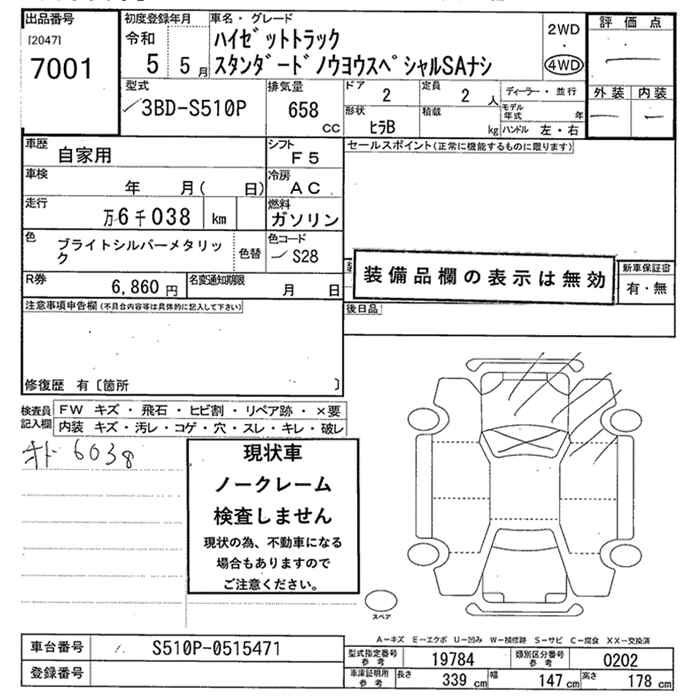 出品番号
[2047]
7001
初度登録年月
令和
5 5月
車名・グレード
ハイゼットトラック
スタンダードノウヨウスペシャルSAナシ
2WD
・
4WD
評価点
外装 内装
型式
3BD-S510P
排気量
658
cc
ドア 2
形状
ヒラB
定員 2人
積載 kg
ディーラー・並行
モデル年式 年
ハンドル 左・右
車歴
自家用
シフト
F5
車検
年 月( 日)
冷房
AC
走行
万6千038 km
燃料
ガソリン
色
ブライトシルバーメタリック
色替
色コード
S28
R券
6,860円
名変通知期限
月 日
セールスポイント(正常に機能するものに限ります)
装備品欄の表示は無効
新車保証書
有・無
後日品
注意事項申告欄(不具合内容等は具体的に記入して下さい)
修復歴 有〔箇所 〕
検査員記入欄
FW キズ・飛石・ヒビ割・リペア跡・×要
内装 キズ・汚レ・コゲ・穴・スレ・キレ・破レ
6038
現状車
ノークレーム
検査しません
現状の為、不動車になる
場合もありますので
ご注意ください。
スペア
A−キズ E−エクボ U−凹み W−補修跡 S−サビ C−腐食 XX−交換済
車台番号
S510P-0515471
登録番号
型式指定番号
参考
19784
類別区分番号
参考
0202
車庫証明用
参考
長さ 339 cm
幅 147 cm
高さ 178 cm